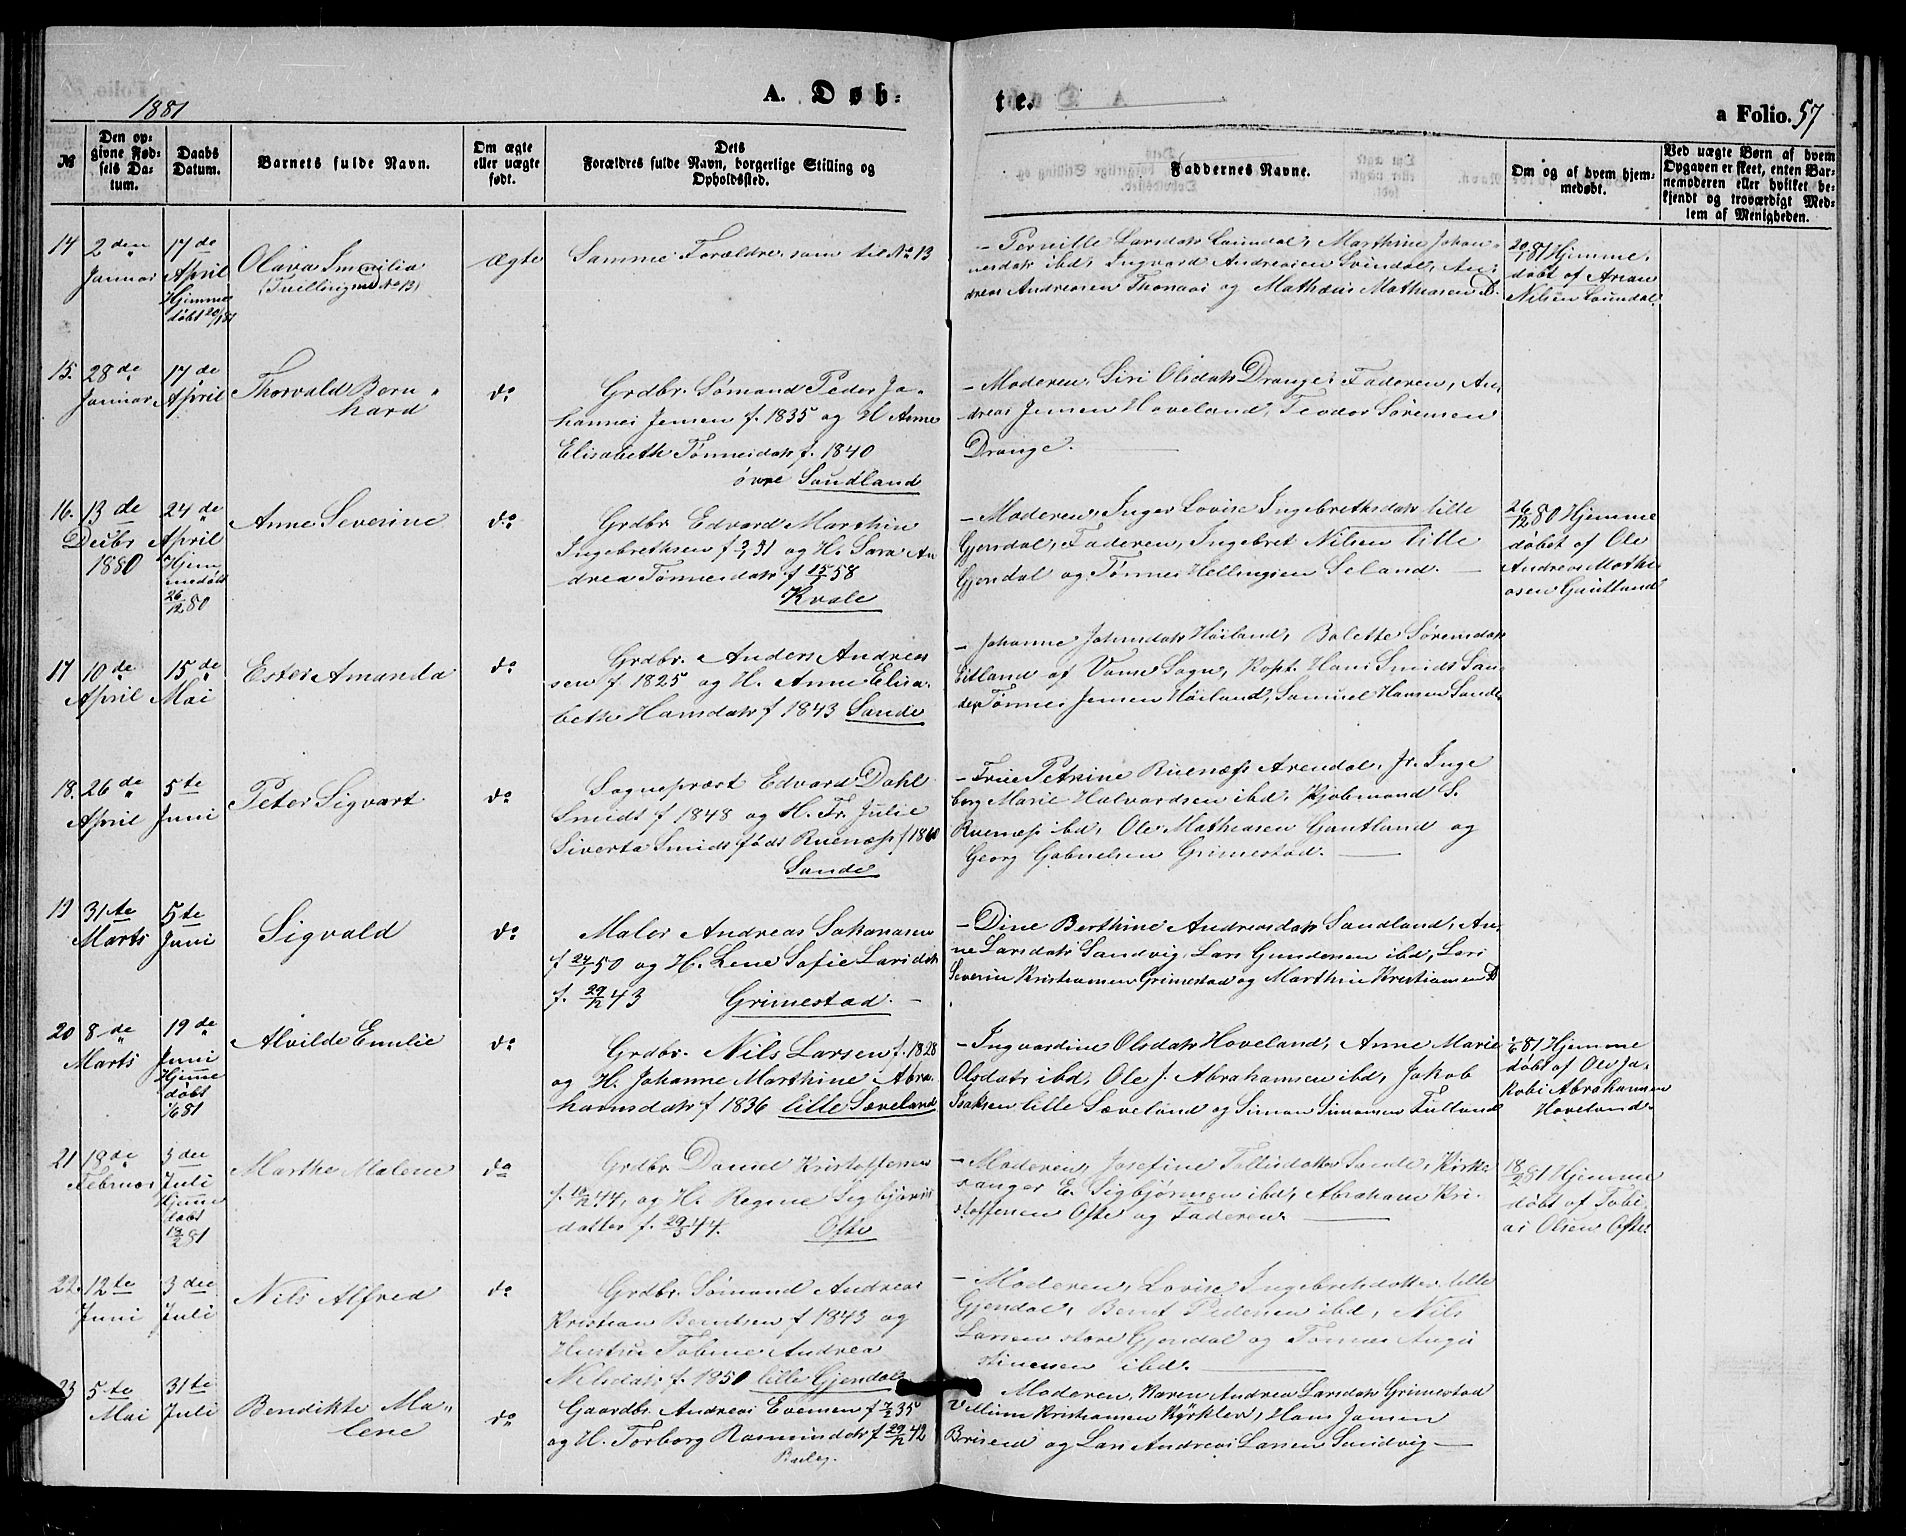 1881
A. Døb-
te.
a Folio. 57
№
Den op-
givne Fød-
sels Da-
tum.
Daabs
Datum.
Barnets fulde Navn.
Om ægte
eller uægte
født.
Dets
Forældres fulde Navn, borgerlige Stilling og
Opholdssted.
Faddernes Navne.
Om og af hvem hjem-
medøbt.
Ved uægte Børn af hvem
Opgaven er skeet, enten Bar-
nemoderen eller hvilket be-
kjendt og troværdigt Med-
lem af Menigheden.
14
2den
Januar
17de
April
Hjemme
døbt 20/1 81
Olava Emilia
(Tvilling med No 13)
ægte
Samme Forældre som til No 13
– Pernille Larsdatr Laundal, Marthine Johan-
nesdatr ibd, Ingvard Andreasen Svindal, An-
dreas Andreasen Thorsaas og Mathæus Mathiasen D.
20/1 81 Hjemme
døbt af Arian
Nilsen Laundal.
15.
28de
Januar
17de
April
Thorvald Bern-
hard
do
Grdbr. Sømand Peder Jo-
hannes Jensen f. 1835 og H Anne
Elisabeth Tønnesdatr f. 1840
øvre Sandland
– Moderen, Siri Olsdatr Drange, Faderen, An-
dreas Jensen Hoveland, Teodor Sørensen
Drange.
16.
13de
Decbr
1880
24de
April
Hjem
medøbt
26/12 80
Anne Severine
do
Grdbr Edvard Marthin
Ingebrethsen f 31 og H. Sara An
drea Tønnesdatr f 15/5 58
Kvale
– Moderen, Inger Lovise Ingebrethsdatr lille
Gjendal, Faderen, Ingebret Nilsen lille
Gjendal og Tønnes Hellingsen Seland.
26/12 80 Hjemme
døbet af Ole
Andreas Mathi
asen Gautland
17
10de
April
15de
Mai
Ester Amanda
do
Grdbr. Anders Andreas
sen f 1825 og H. Anne Elisa-
beth Hansdatr f 1843 Sande
– Johanne Johnsdatr Høiland, Bolette Sørensdatr
Eitland af Vanse Sogn, Kapt. Hans Smids San
de, Tønnes Jensen Høiland, Samuel Hansen Sande
18.
26de
April
5te
Juni
Peter Sigvart
do
Sognepræst Edvard Dahl
Smids f 1848 og H. Fr. Julie
Siverta Smids født Ruenæss f 1860
Sande
– Frue Petrine Ruenæss Arendal, Fr. Inge
borg Marie Halvardsen ibd, Kjøbmand S.
Ruenæss ibd, Ole Mathiasen Gautland og
Georg Gabrielsen Grimestad.
19
31te
Marts
5te
Juni
Sigvald
do
Maler Andreas Johansen
f 24/1 50 og H. Lene Sofie Larsdatr
f. 29/12 43 Grimestad.
– Dine Berthine Andreasdatr Sandland, An-
ne Larsdatr Sandvig, Lars Gundersen ibd, Lars
Severin Kristiansen Grimestad og Marthin Kristiansen D
20
8de
Marts
19de
Juni
Hjemme
døbt
1/6 81
Alvilde Emilie
do
Grdbr. Nils Larsen f. 1828
og H. Johanne Marthine Abra-
hamsdatr f 1836 lille Sæveland
– Ingvardine Olsdatr Hoveland, Anne Marie
Olsdatr ibd, Ole J. Abrahamsen ibd, Jakob
Isaksen lille Sæveland og Simon Simonsen Tulland
1/6 81 Hjemme
døbt af Ole Ja-
kobs Abrahamsen
Hoveland.
21
18de
Februar
3die
Juli
Hjemme
døbt
18/2 81
Marthe Malene
do
Grdbr Daniel Kristoffersen
f. 18/12 44, og H. Regine Sigbjørns
datter f. 29/3 44. Ofte
– Moderen, Josefine Tollisdatter Sande, Kirke-
sanger E. Sigbjørnsen ibd, Abraham Kri-
stoffersen Ofte og Faderen.
18/2 81 Hjemme
døbt af Tobi-
as Olsen Ofte.
22.
12te
Juni
3die
Juli
Nils Alfred
do
Grdbr. Sømand Andreas
Kristian Berntsen f 1843 og
Hustru Tobine Andrea
Nilsdatr f. 1850 lille Gjendal
– Moderen, Lovise Ingebretsdatter lille
Gjendal, Bernt Pedersen ibd, Nils
Larsen store Gjendal og Tønnes Augu
stinussen ibd.
23
5te
Mai
31te
Juli
Bendikte Ma-
lene
do
Gaardbr Andreas Evensen f 7/2 35
og H. Torborg Rasmusdatr f 29/12 42
Moderen, Karen Andrea Larsdatr Grimestad
Villum Kristiansen Kørkler, Hans Jansen
Briseid og Lars Andreas Larsen Sandvig